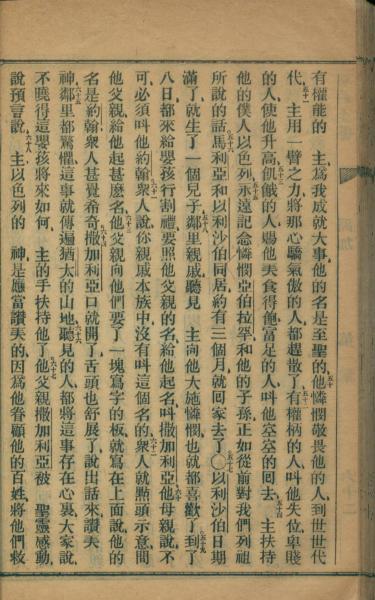 有權能的　主為我成就大事他的名是至聖的五十他憐憫敬畏他的人到世世代
代五十一主用一臂之力將那心驕氣傲的人都趕散了五十二有權柄的人叫他失位卑賤
的人使他升高五十三飢餓的人賜他美食得飽富足的人叫他空空的回去五十四主扶持
他的僕人以色列五十五永遠記念憐憫亞伯拉罕和他的子孫正如從前對我們列祖
所說的話五十六馬利亞和以利沙伯同居約有三個月就回家去了〇五十七以利沙伯日期
滿了就生了一個兒子五十八鄰里親戚聽見　主向他大施憐憫也就都喜歡了五十九到了
八日都來給嬰孩行割禮要照他父親的名給他起名叫撒加利亞六十他母親說不
可必須叫他約翰六十一眾人說你親戚本族中沒有叫這個名的六十二眾人就點頭示意問
他父親給他起甚麼名六十三他父親向他們要了一塊寫字的板就寫在上面說他的
名是約翰眾人甚覺希奇六十四撒加利亞口就開了舌頭也舒展了說出話來讚美
神六十五鄰里都驚懼這事就傳遍猶太的山地六十六聽見的人都將這事存在心裏大家說
不曉得這嬰孩將來如何　主的手扶持他了六十七他父親撒加利亞被　聖靈感動
說預言說六十八主以色列的　神是應當讚美的因為他眷顧他的百姓將他們救